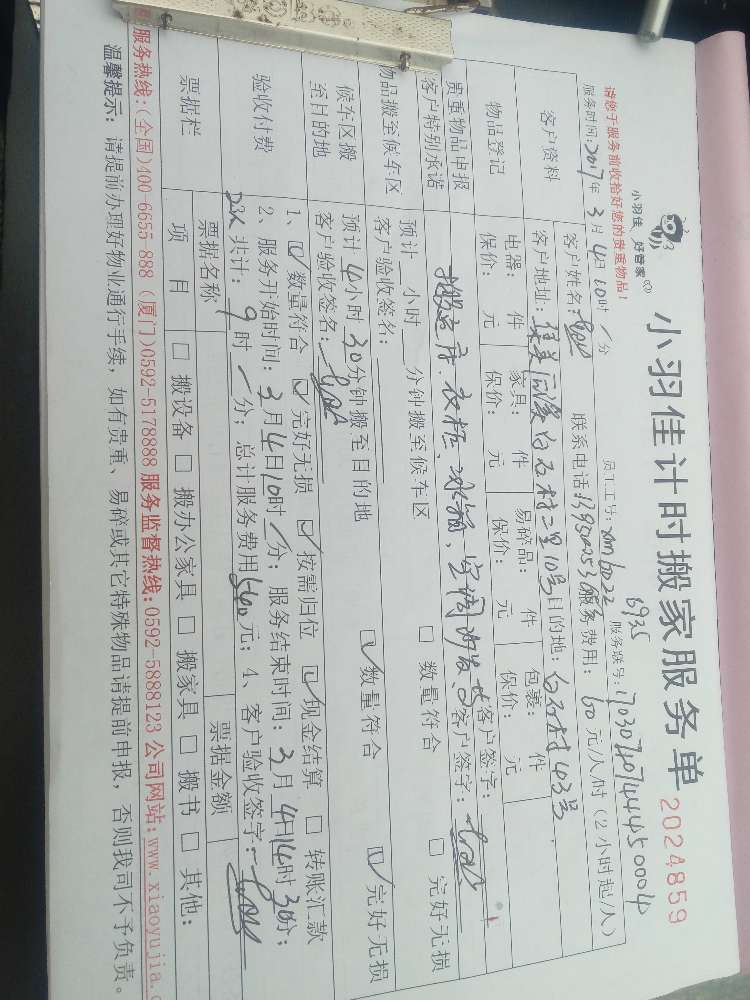 小羽佳 好管家
小羽佳计时搬家服务单 2024859
请您于服务前收拾好您的贵重物品！
员工工号： 服务联号：
服务时间：2017年 3月 4日 10时 / 分
服务费用： 60 元/人/时（2小时起/人）
客户资料
客户姓名： 联系电话
客户地址： 白石村二里10号 目的地：白石村43号
物品登记
电器： 件 家具： 件 易碎品： 件 包裹： 件
保价： 元 保价： 元 保价： 元 保价： 元
贵重物品申报 客户签字：
客户特别承诺 衣柜、冰箱、空调 客户签字：
物品搬至候车区
预计 小时 分钟搬至候车区 □ 数量符合 □ 完好无损
客户验收签名：
候车区搬至目的地
预计 4小时 30分钟搬至目的地 ☑ 数量符合 ☑ 完好无损
客户验收签名：
验收付费
1、☑ 数量符合 ☑ 完好无损 ☑ 按需归位 ☑ 现金结算 □ 转账汇款
2、服务开始时间：3月4日10时 / 分；服务结束时间：3月4日14时30分；
共计：9时 / 分；总计服务费用540元；4、客户验收签字：
票据栏
票据名称 票据金额
项 目 □ 搬设备 □ 搬办公家具 □ 搬家具 □ 搬书 □ 其他：
服务热线：(全国)400-6655 888 (厦门)0592-5178888 服务监督热线：0592-5888123 公司网站：www.xiaoyujia.c
温馨提示： 请提前办理好物业通行手续，如有贵重、易碎或其它特殊物品请提前申报，否则我司不予负责。